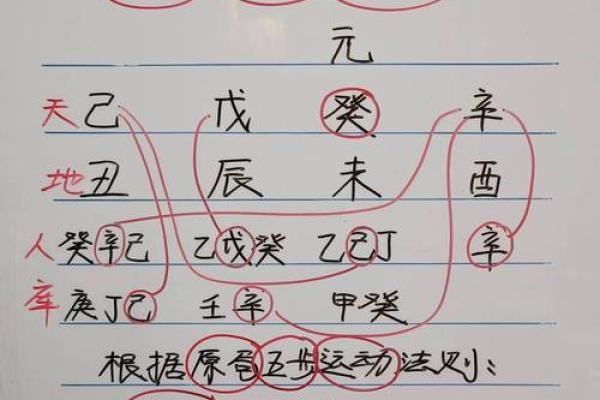 元
天 己 戊 癸 辛
地 丑 辰 未 酉
人 癸辛己 乙戊癸 乙己丁 辛
库 庚丁己 壬辛 甲癸
根据原包五步运动法则：